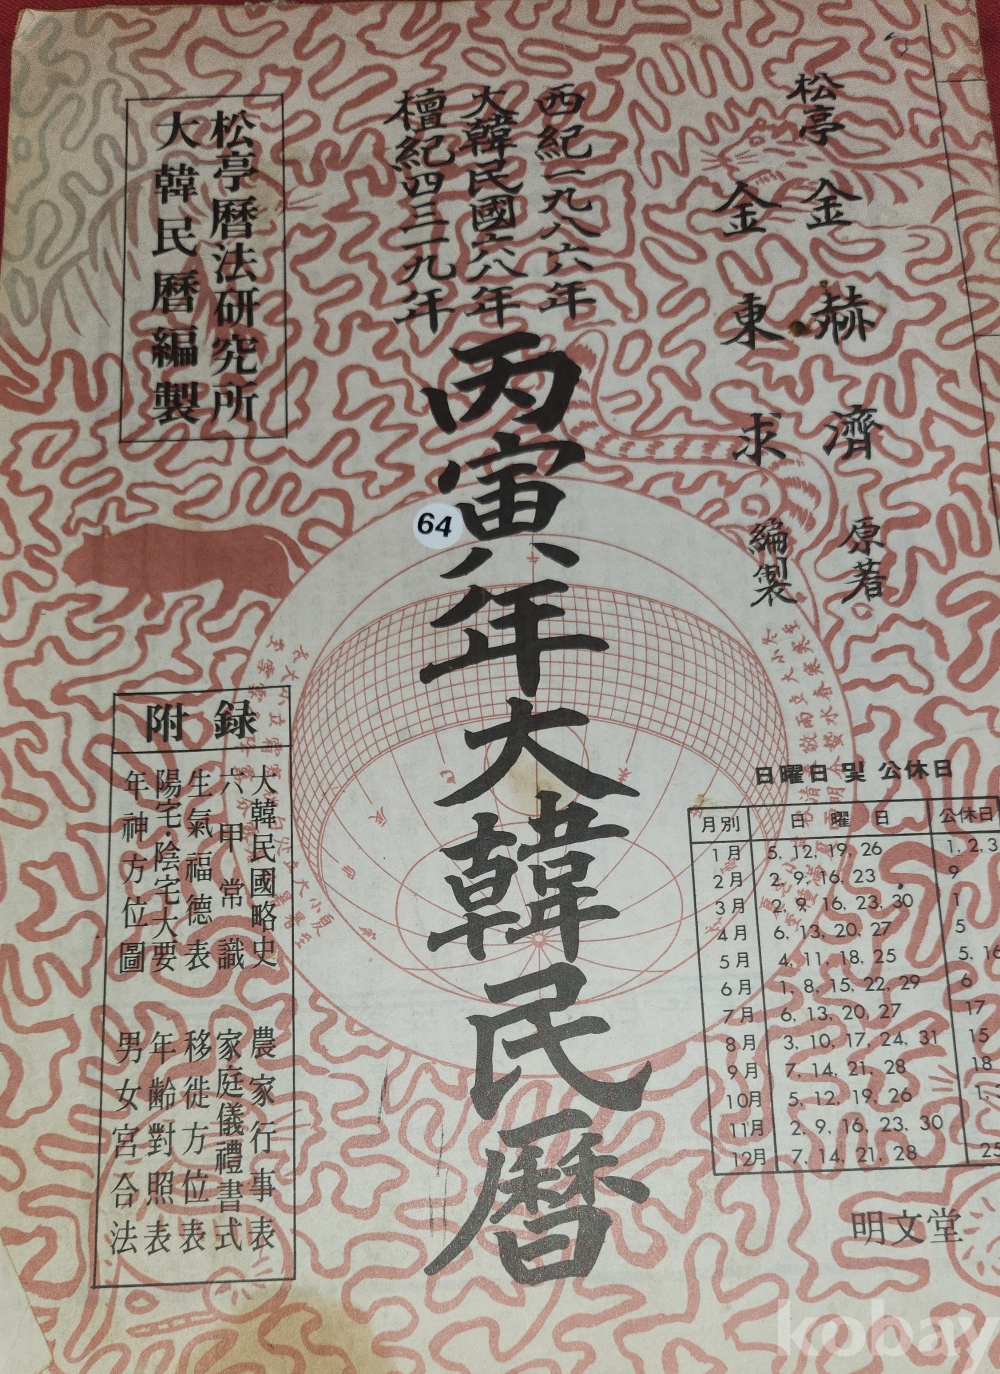 松亭 金赫濟 原著
金東求 編製
西紀一九八六年
大韓民國六八年
檀紀四三一九年
丙寅年大韓民曆
松亭曆法研究所
大韓民曆編製
64
附錄
大韓民國略史 農家行事表
六甲常識 家庭儀禮書式
生氣福德表 移徙方位表
陽宅·陰宅大要 年齡對照表
年神方位圖 男女宮合法
日曜日 및 公休日
月別 日曜日 公休日
1月 5, 12, 19, 26 1, 2, 3
2月 2, 9, 16, 23 9
3月 2, 9, 16, 23, 30 1
4月 6, 13, 20, 27 5
5月 4, 11, 18, 25 5, 16
6月 1, 8, 15, 22, 29 6
7月 6, 13, 20, 27 17
8月 3, 10, 17, 24, 31 15
9月 7, 14, 21, 28 18
10月 5, 12, 19, 26 1,
11月 2, 9, 16, 23, 30
12月 7, 14, 21, 28 25
明文堂
kobay